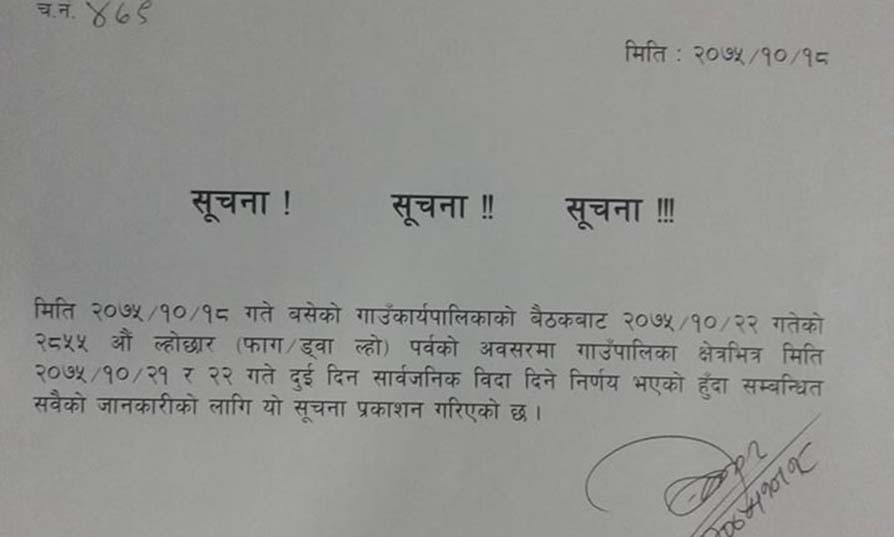 च.न. ४६९
मिति : २०७५/१०/१८
सूचना ! सूचना !! सूचना !!!
मिति २०७५/१०/१८ गते बसेको गाउँकार्यपालिकाको बैठकबाट २०७५/१०/२२ गतेको
२८५५ औं ल्होछार (फाग/ड्वा ल्हो) पर्वको अवसरमा गाउँपालिका क्षेत्रभित्र मिति
२०७५/१०/२१ र २२ गते दुई दिन सार्वजनिक विदा दिने निर्णय भएको हुँदा सम्बन्धित
सवैको जानकारीको लागि यो सूचना प्रकाशन गरिएको छ ।